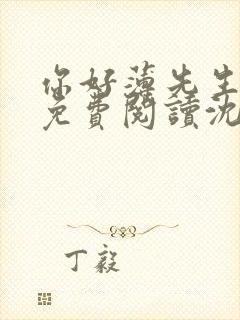 你好薄先生
免費閱讀沈
丁毅